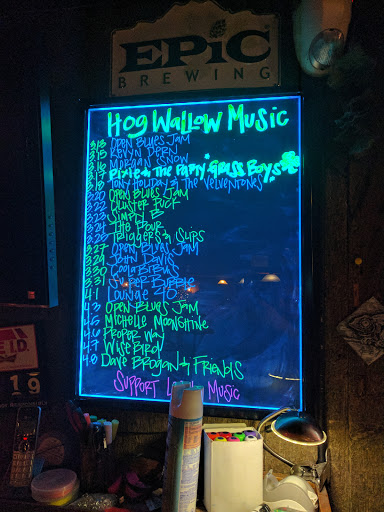 EPIC
BREWING
Hog Wallow Music
3/13 Open Blues Jam
3/15 Kevyn Dern
3/16 Morgan Snow
3/17 Pixie & The Party Grass Boys
Tony Holiday & The Velvetones
3/20 Open Blues Jam
3/22
3/23 Simply B
3/24 The Pour
Triggers & Slips
3/27 Open Blues Jam
3/29 John Davis
3/30
3/31 Super Bubble
4/1 Lounge 40
4/3 Open Blues Jam
4/5 Michelle Moonshine
4/6 Proper Way
4/7 Wise Bird
4/8 Dave Brogan & Friends
Support Music
I.D.
19